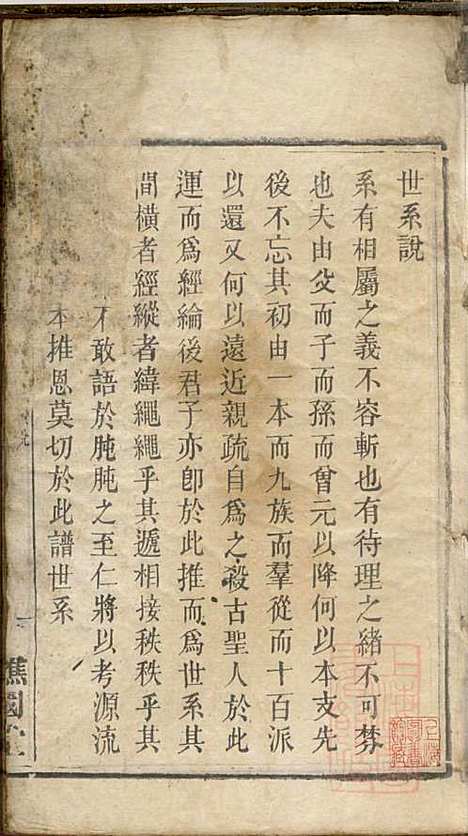 世系說
系有相屬之義不容斬也有待理之緒不可棼
也夫由父而子而孫而曾元以降何以本支先
後不忘其初由一本而九族而羣從而十百派
以還又何以遠近親疏自為之殺古聖人於此
運而為經綸後君子亦卽於此推而為世系其
間橫者經縱者緯繩繩乎其遞相接秩秩乎其
不敢語於肫肫之至仁將以考源流
本推恩莫切於此譜世系
譙國堂